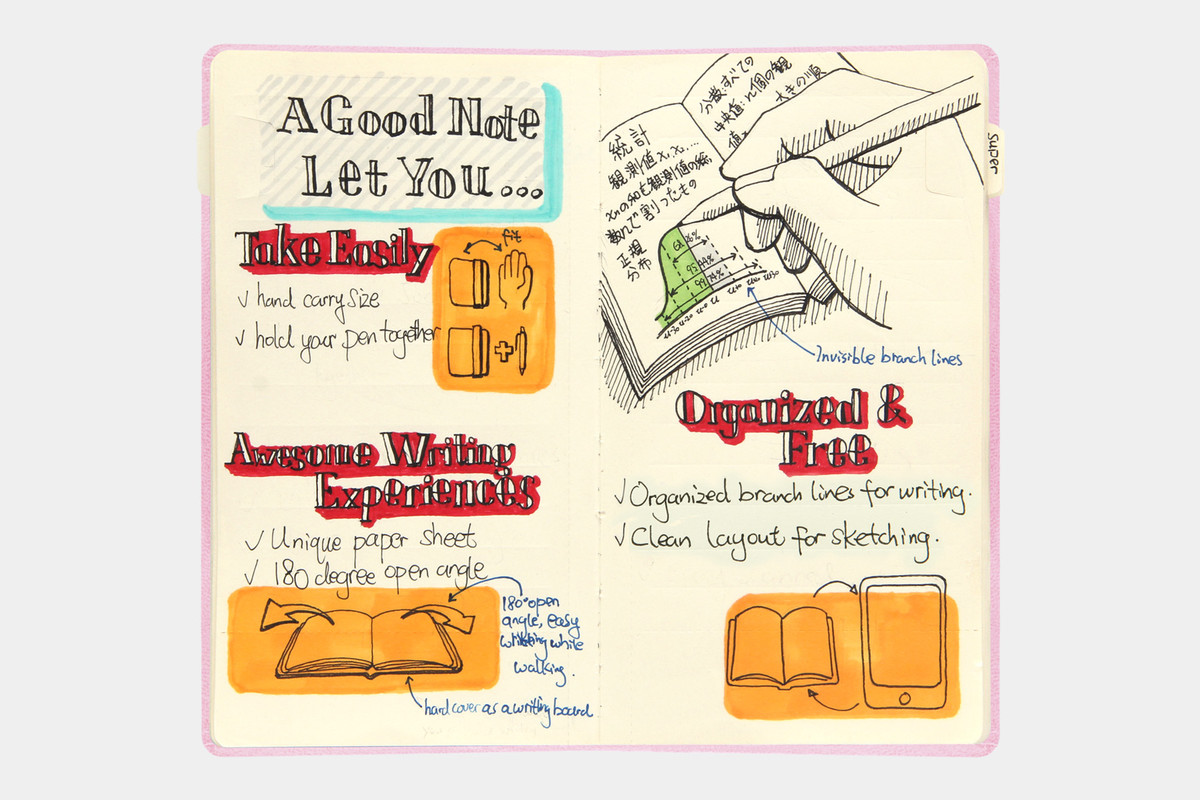 A Good Note
Let You...
Take Easily
√ hand carry size
√ hold your pen together
fit
Awesome Writing
Experiences
√ Unique paper sheet
√ 180 degree open angle
180° open
angle, easy
writing while
walking.
hard cover as a writing board
分散:すべての
中央値:n個の観
大きの順
値。
統計
観測値x₁,x₂,...
xnの和も観測値の総
数nで割ったもの
正規
分布
68.26%
95.44%
99.74%
Super
Invisible branch lines
Organized &
Free
√ Organized branch lines for writing.
√ Clean layout for sketching.